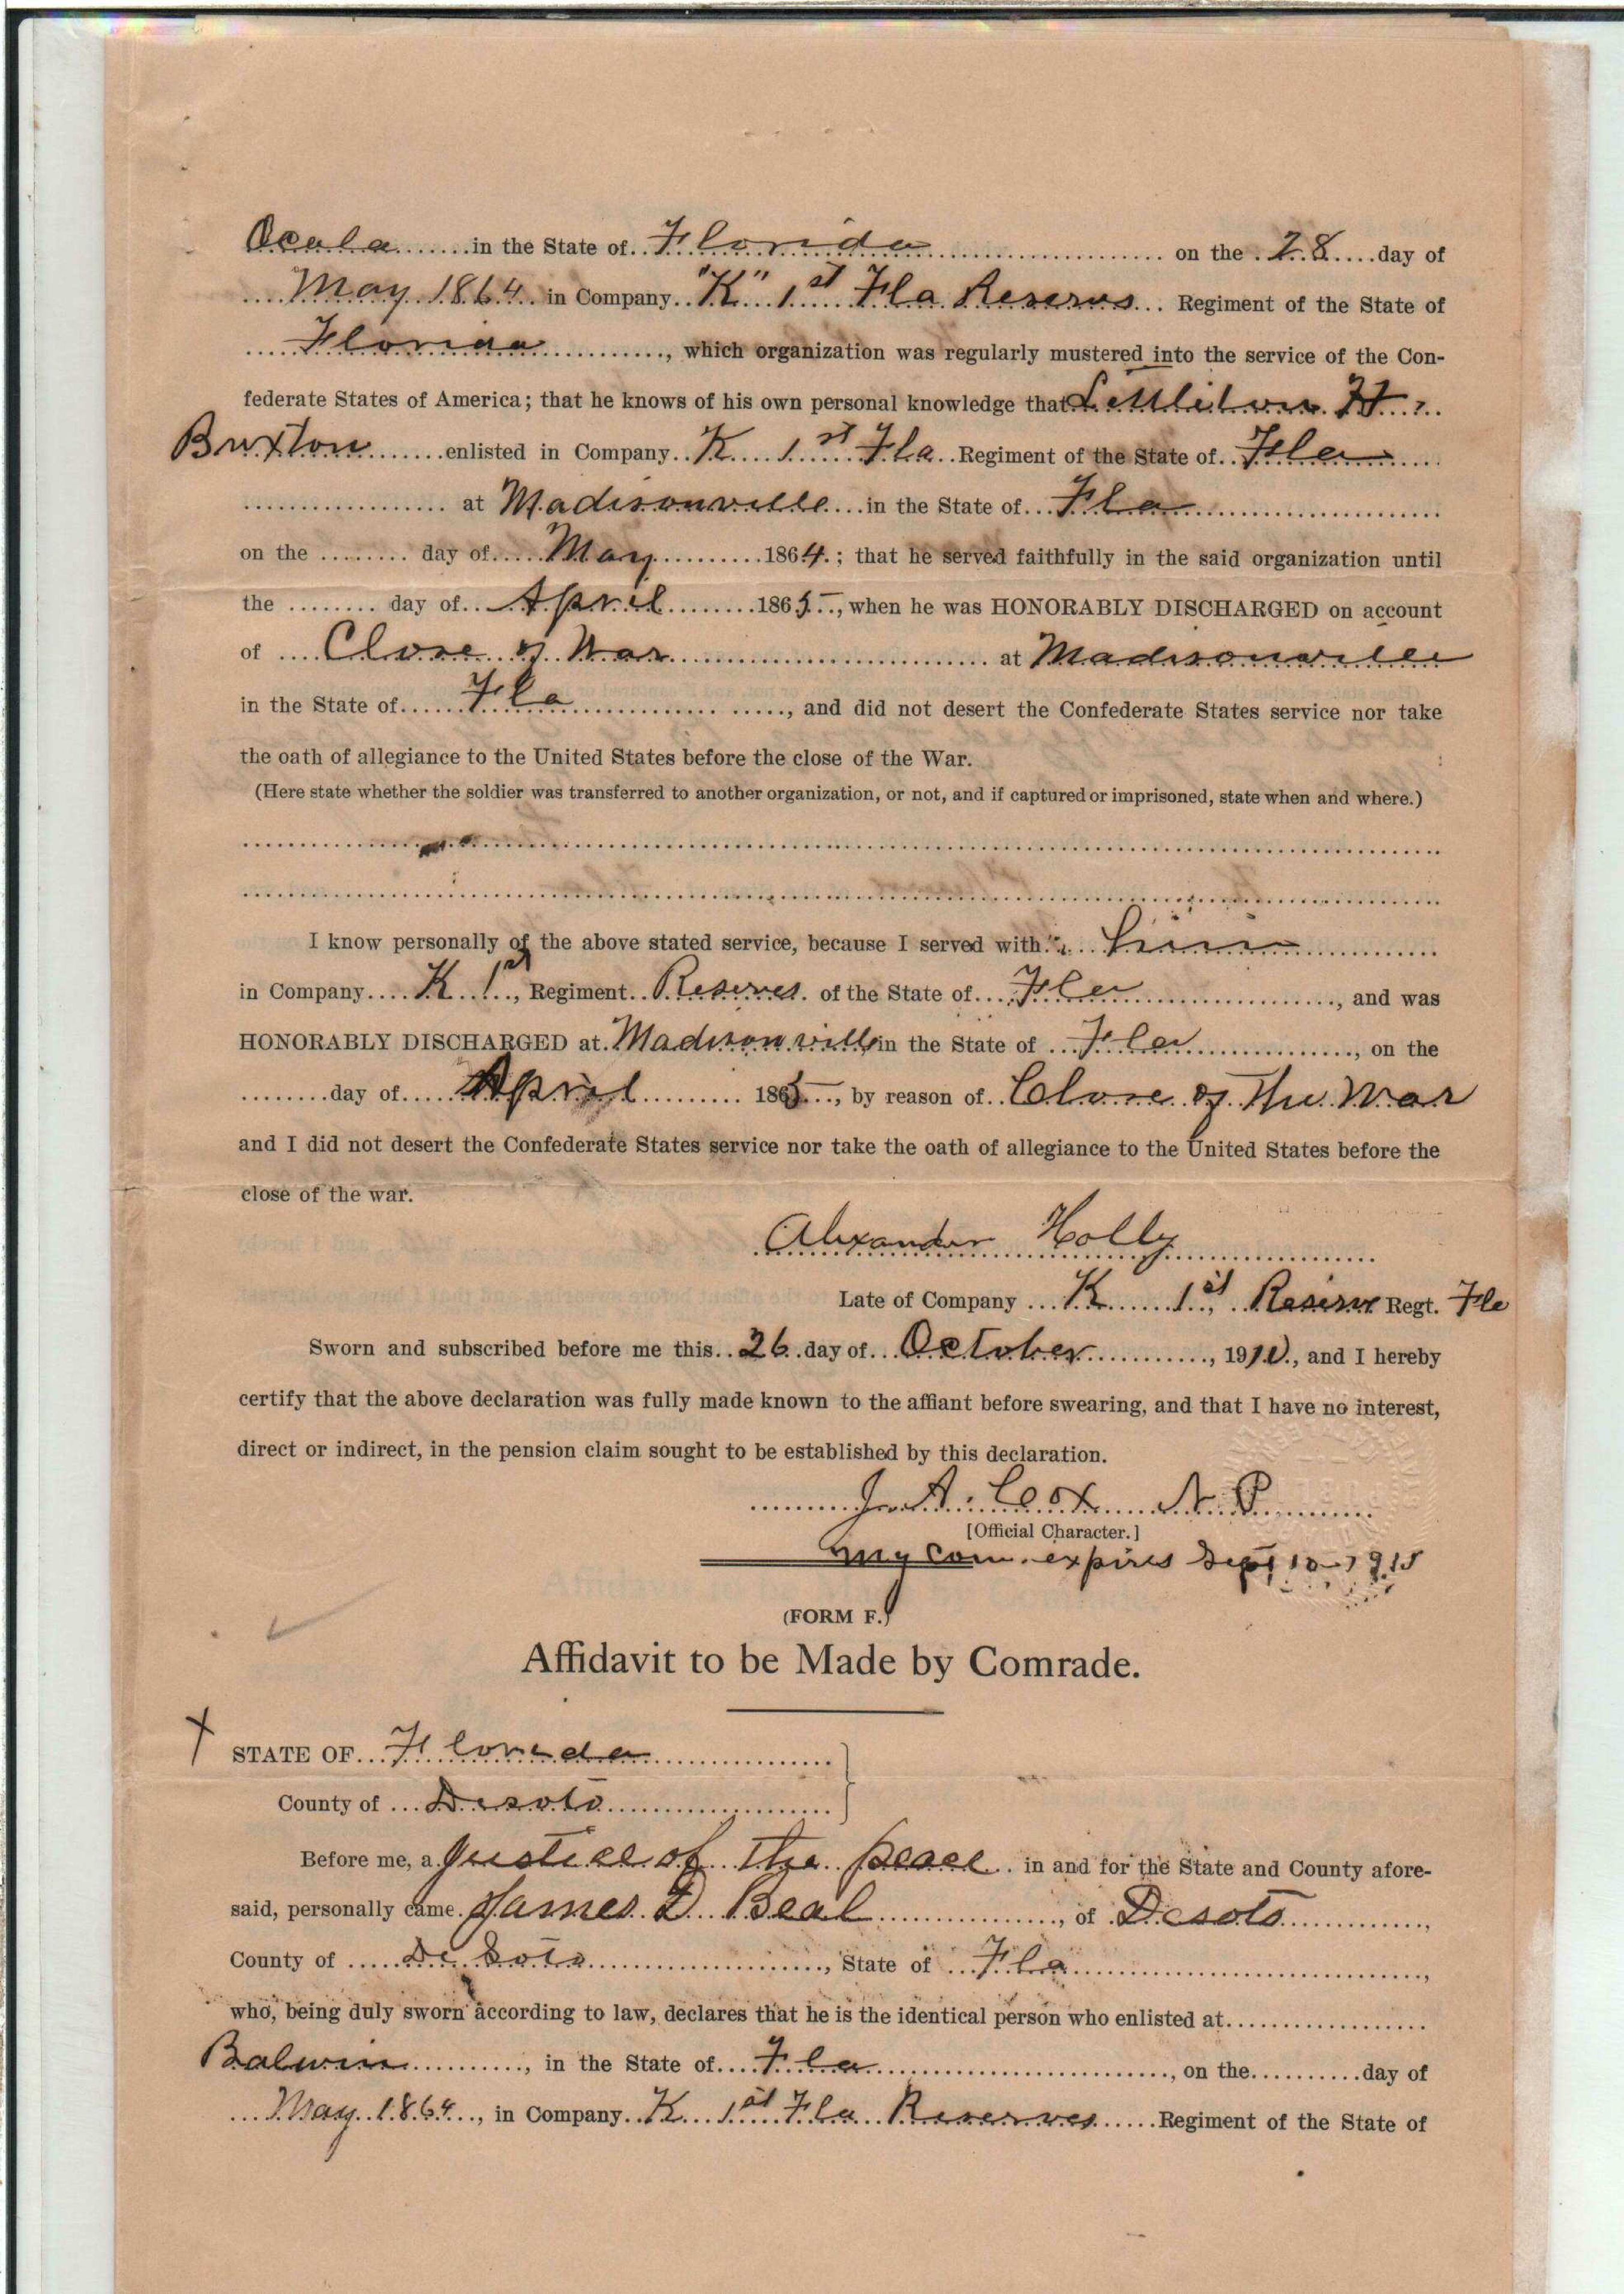 Ocala in the State of Florida on the 28 day of
May 1864 in Company "K" 1st Fla Reserves Regiment of the State of
Florida, which organization was regularly mustered into the service of the Con-
federate States of America; that he knows of his own personal knowledge that Littleton H.
Buxton enlisted in Company K 1st Fla Regiment of the State of Fla
at Madisonville in the State of Fla
on the day of May 1864; that he served faithfully in the said organization until
the day of April 1865, when he was HONORABLY DISCHARGED on account
of Close of War at Madisonville
in the State of Fla, and did not desert the Confederate States service nor take
the oath of allegiance to the United States before the close of the War.
(Here state whether the soldier was transferred to another organization, or not, and if captured or imprisoned, state when and where.)
I know personally of the above stated service, because I served with him
in Company K 1st, Regiment Reserves of the State of Fla, and was
HONORABLY DISCHARGED at Madisonville in the State of Fla, on the
day of April 1865, by reason of Close of the War
and I did not desert the Confederate States service nor take the oath of allegiance to the United States before the
close of the war.
Alexander Holly
Late of Company K 1st Reserve Regt. Fla
Sworn and subscribed before me this 26 day of October, 1910, and I hereby
certify that the above declaration was fully made known to the affiant before swearing, and that I have no interest,
direct or indirect, in the pension claim sought to be established by this declaration.
J. A. Cox N. P.
[Official Character.]
My com. expires Sept 10-1915
(FORM F.)
Affidavit to be Made by Comrade.
X STATE OF Florida
County of Desoto
Before me, a Justice of the peace in and for the State and County afore-
said, personally came James D Beal, of Desoto,
County of De Soto, State of Fla,
who, being duly sworn according to law, declares that he is the identical person who enlisted at
Balwin, in the State of Fla, on the day of
May 1864, in Company K 1st Fla Reserves Regiment of the State of